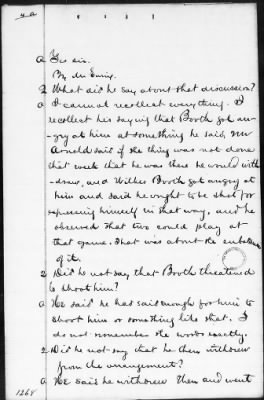 4 a
A Yes sir.
By Mr Ewing.
Q What did he say about that discussion?
A I cannot recollect everything. I
recollect his saying that Booth got an-
gry at him at something he said, Mr
Arnold said if the thing was not done
that week that he was there he would with-
draw, and Wilkes Booth got angry at
him and said he ought to be shot for
expressing himself in that way, and he
observed that two could play at
that game. That was about the substance
of it.
Q Did he not say that Booth threatened
to shoot him?
A He said he has said enough for him to
shoot him or something like that. I
do not remember the words exactly.
Q Did he not say that he then withdrew
from the arrangement?
A He said he withdrew then and went
1268